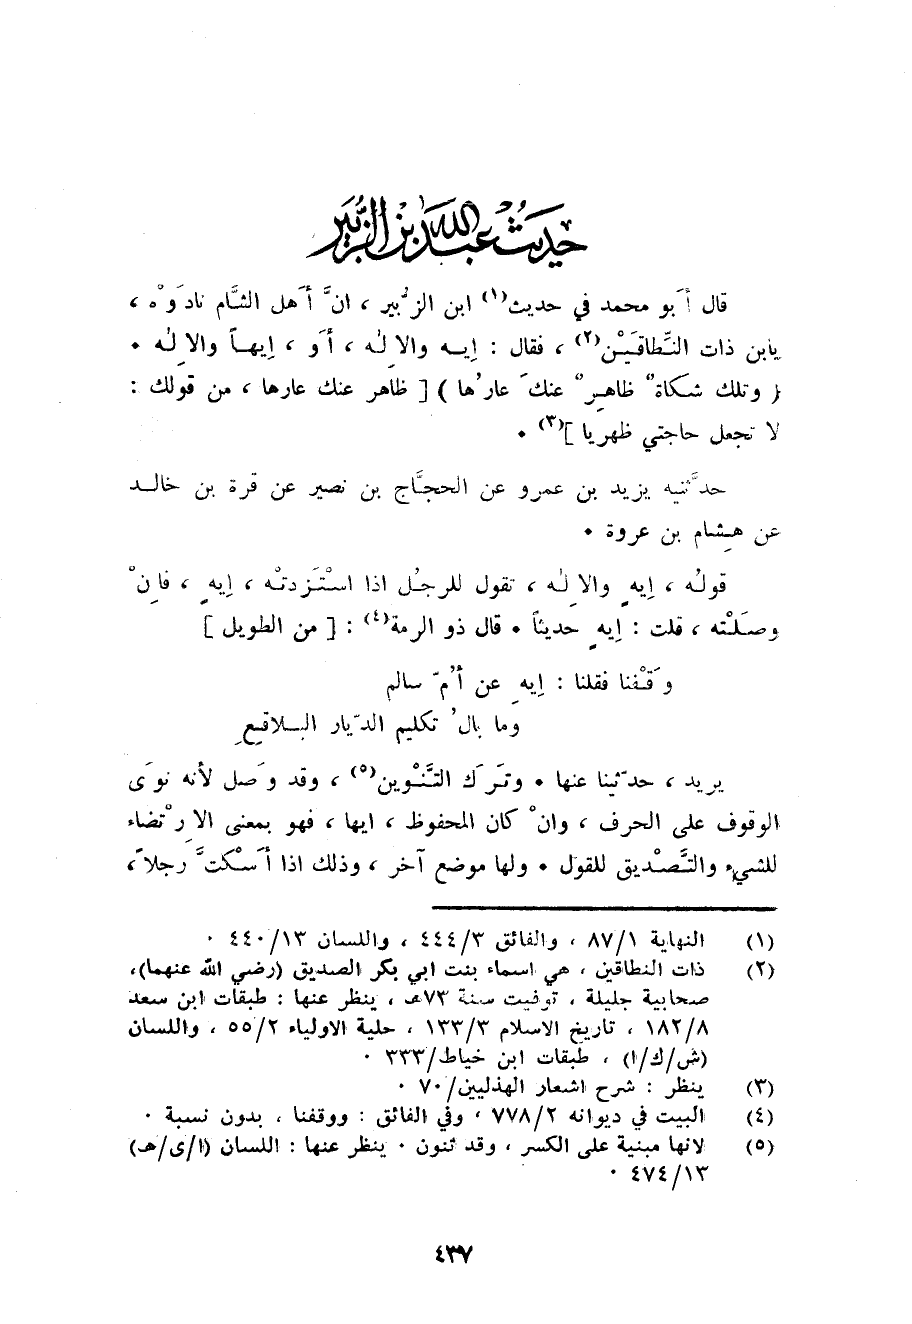 حديث عبد الله بن الزبير
قال أَبو محمد في حديث(١) ابن الزُّبير ، انَّ أَهل الشَّام نادَوْه ،
يابن ذات النِّطاقَيْن(٢) ، فقال : إيـه والاِلٰه ، أَو ، إيهـاً والاِلٰه ٠
( وتلك شكاةٌ ظاهِرٌ عنكَ عارُها ) [ ظاهر عنك عارها ، من قولك :
لا تجعل حاجتي ظهريا ](٣) ٠
حدَّثنيه يزيد بن عمرو عن الحجَّاج بن نصير عن قرة بن خالـد
عن هِشام بن عروة ٠
قولُه ، إيهٍ والاِلٰه ، تقول للرجُل اذا اسْتَزدتَه ، إيهِ ، فاِنْ
وصَلْتَه ، قلت : إيهٍ حديثاً ٠ قال ذو الرمة(٤) : [ من الطويل ]
وَقَفْنا فقلنا : إيهِ عن أُمّ سالم
وما بالُ تكليم الدّيار البـلاقِعِ
يريد ، حدّثينا عنها ٠ وتَرَك التَّنْوين(٥) ، وقد وَصل لأنه نوَى
الوقوف على الحرف ، وانْ كان المحفوظ ، ايها ، فهو بمعنى الاِرْتضاء
للشيء والتَّصْديق للقول ٠ ولها موضع آخر ، وذلك اذا أَسْكتَّ رجلاً ،
(١) النهاية ٨٧/١ ، والفائق ٤٤٤/٣ ، واللسان ٤٤٠/١٣ ٠
(٢) ذات النطاقين ، هي اسماء بنت ابي بكر الصديق (رضي الله عنهما)،
صحابية جليلة ، توفيت سنة ٧٣هـ ، ينظر عنها : طبقات ابن سعد
١٨٢/٨ ، تاريخ الاسلام ١٣٣/٣ ، حلية الاولياء ٥٥/٢ ، واللسان
(ش/ك/ا) ، طبقات ابن خياط/٣٣٣ ٠
(٣) ينظر : شرح اشعار الهذليين/٧٠ ٠
(٤) البيت في ديوانه ٧٧٨/٢ ، وفي الفائق : ووقفنا ، بدون نسبة ٠
(٥) لانها مبنية على الكسر ، وقد تنون ٠ ينظر عنها : اللسان (ا/ى/هـ)
٤٧٤/١٣ ٠
٤٣٧